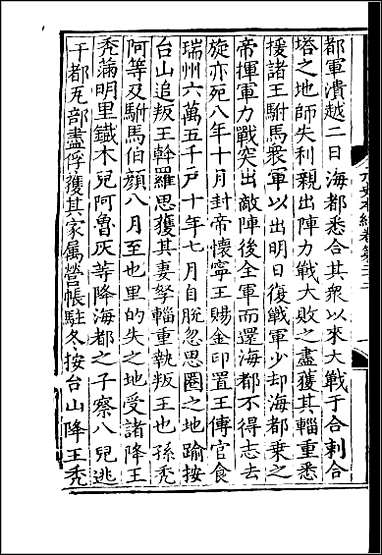 都軍潰越二日海都悉合其衆以來大戰于合剌合
塔之地師失利親出陣力戰大敗之盡獲其輜重悉
援諸王駙馬衆軍以出明日復戰軍少却海都乘之
帝揮軍力戰突出敵陣後全軍而還海都不得志去
旋亦死八年十月封帝懷寧王賜金印置王傅官食
瑞州六萬五千戸十年七月自脫忽思圈之地踰按
台山追叛王斡羅思獲其妻孥輜重執叛王也孫禿
阿等及駙馬伯顏八月至也里的失之地受諸降王
禿滿明里鐵木兒阿魯灰等降海都之子察八兒逃
于都瓦部盡俘獲其家属營帳駐冬按台山降王禿